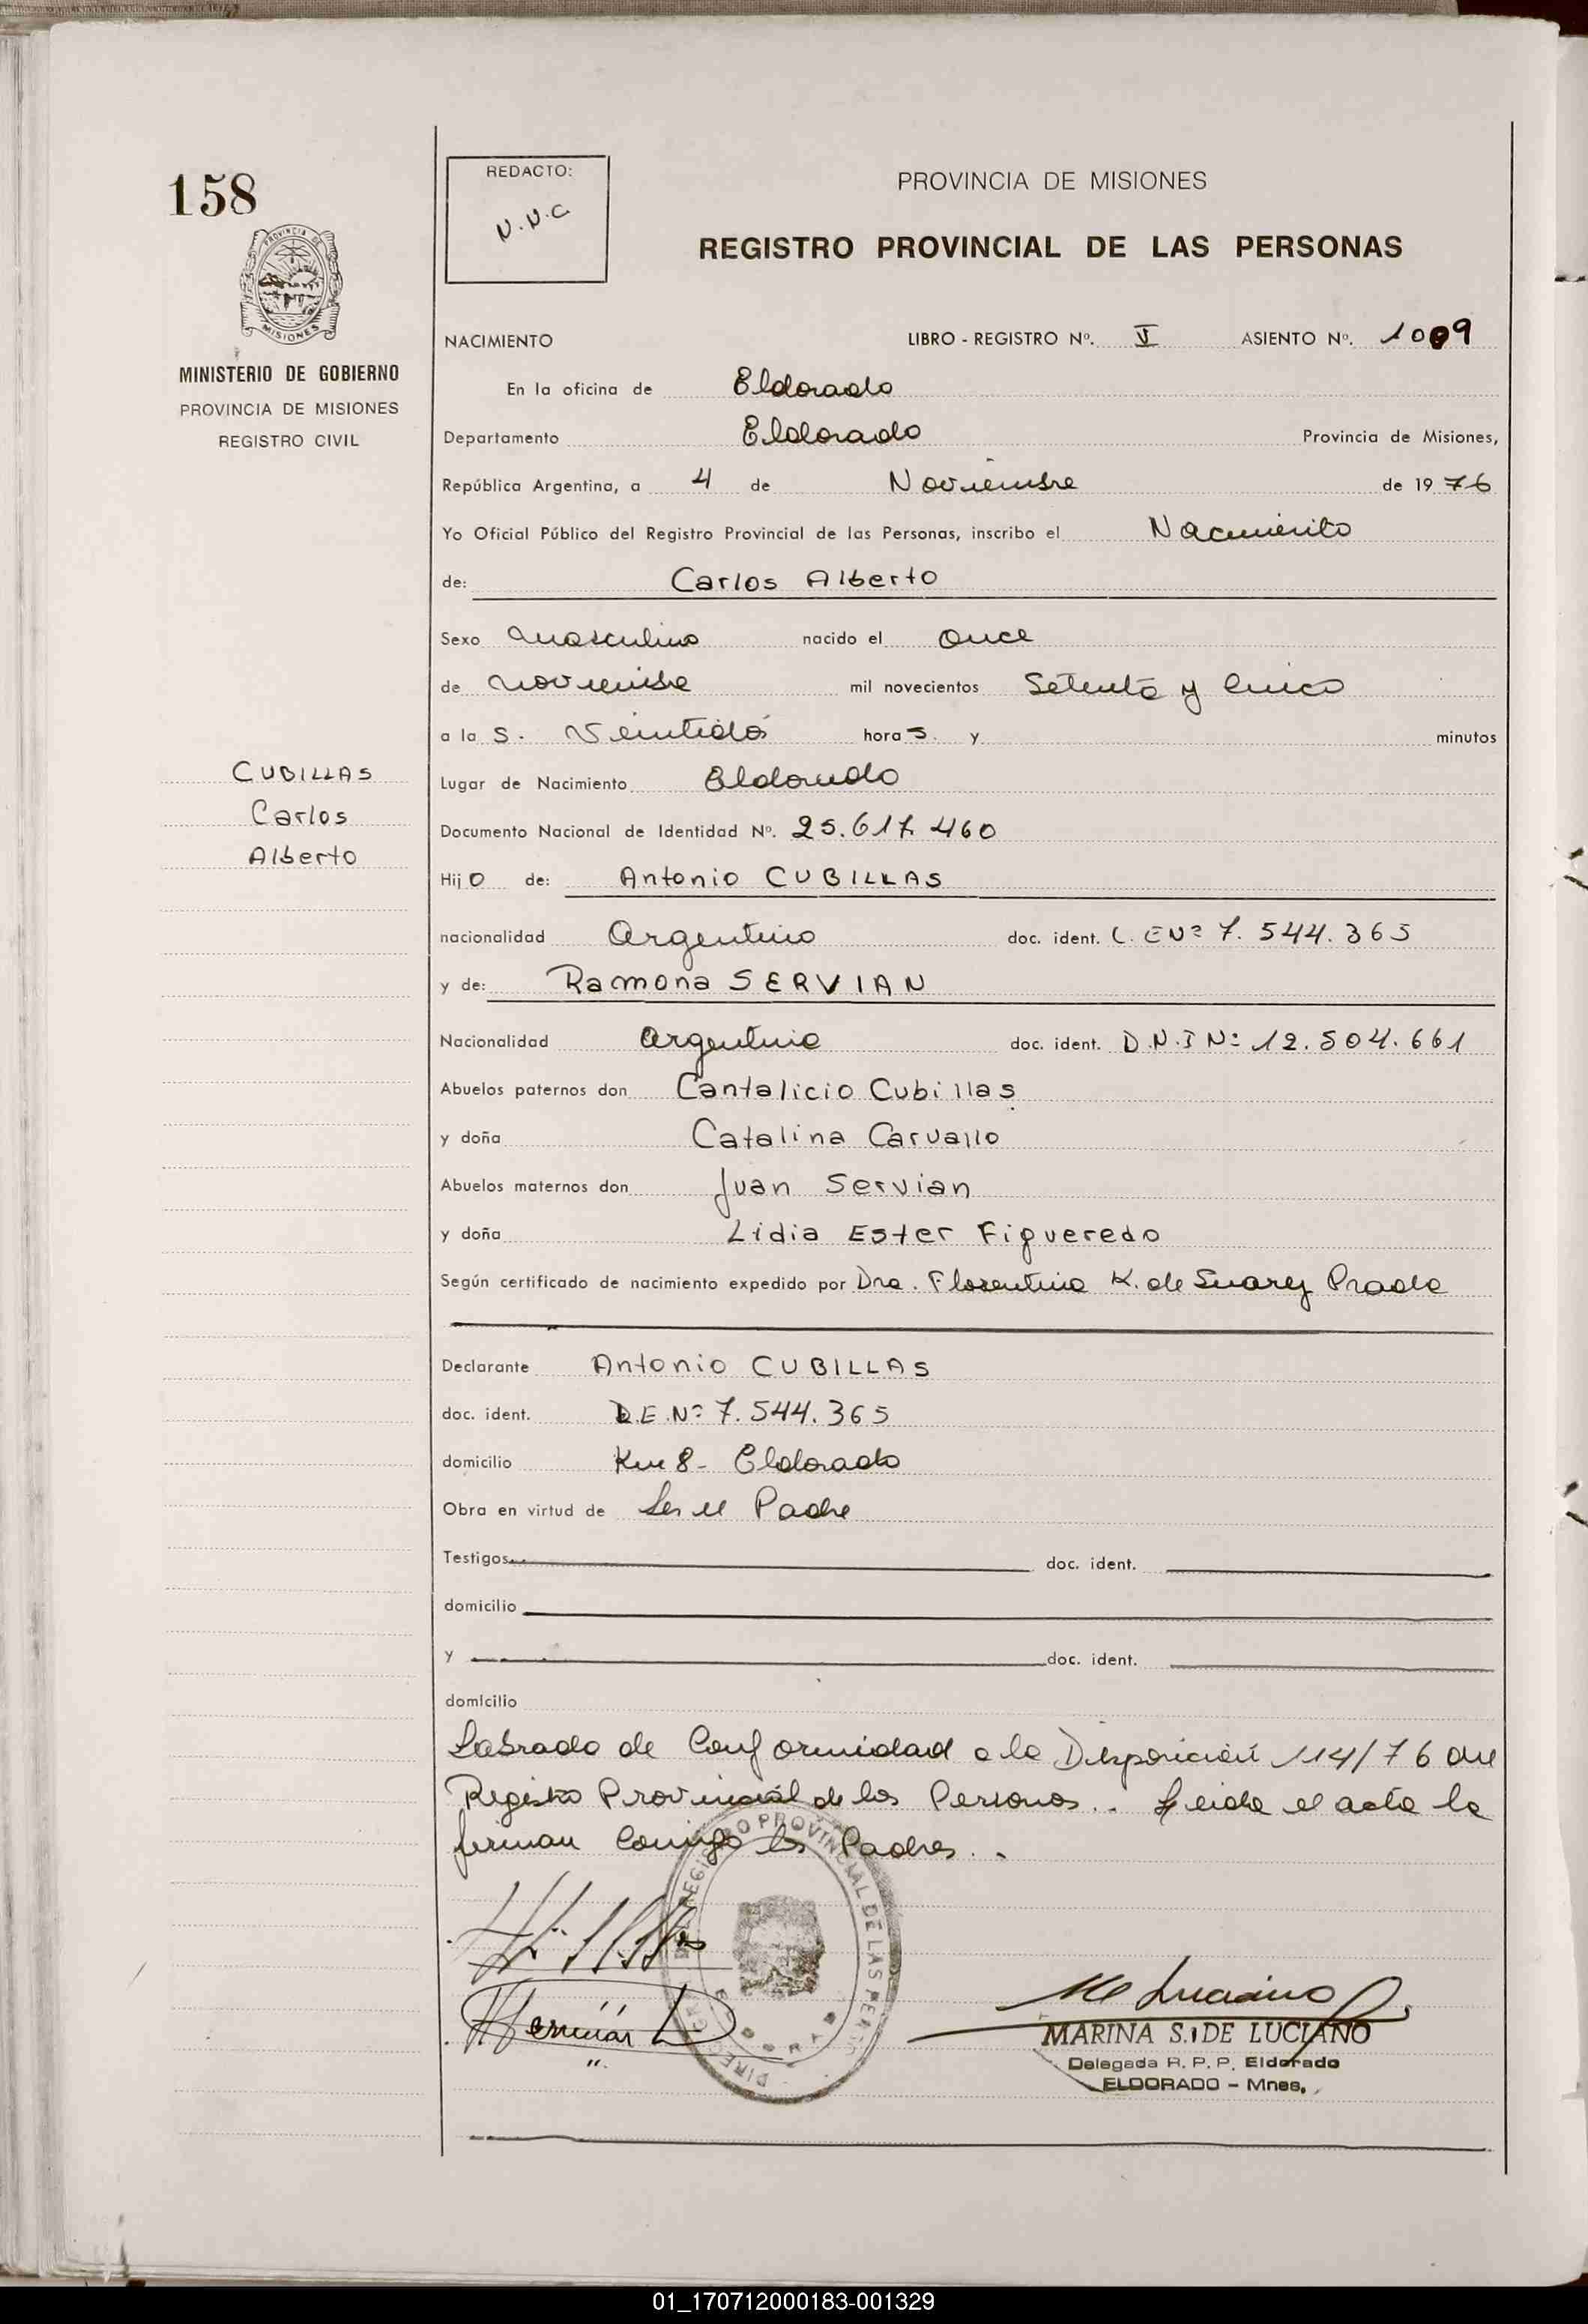 158
REDACTO:
N.N.C
PROVINCIA DE MISIONES
REGISTRO PROVINCIAL DE LAS PERSONAS
PROVINCIA DE
MISIONES
MINISTERIO DE GOBIERNO
PROVINCIA DE MISIONES
REGISTRO CIVIL
NACIMIENTO LIBRO - REGISTRO Nº. V ASIENTO Nº. 1009
En la oficina de Eldorado
Departamento Eldorado Provincia de Misiones,
República Argentina, a 4 de Noviembre de 19 76
Yo Oficial Público del Registro Provincial de las Personas, inscribo el Nacimiento
de: Carlos Alberto
Sexo masculino nacido el once
de noviembre mil novecientos Setenta y Cinco
a la s. Veintidós hora s. y minutos
CUBILLAS
Carlos
Alberto
Lugar de Nacimiento Eldorado
Documento Nacional de Identidad Nº. 25.617.460
Hij o de: Antonio CUBILLAS
nacionalidad Argentino doc. ident. L.E Nº 7.544.365
y de: Ramona SERVIAN
Nacionalidad Argentina doc. ident. D.N.I Nº 12.504.661
Abuelos paternos don Cantalicio Cubillas
y doña Catalina Carvallo
Abuelos maternos don Juan Servian
y doña Lidia Ester Figueredo
Según certificado de nacimiento expedido por Dra. Florentina K. de Suarez Prado
Declarante Antonio CUBILLAS
doc. ident. L.E.Nº 7.544.365
domicilio Km 8 - Eldorado
Obra en virtud de Ser el Padre
Testigos doc. ident.
domicilio
y doc. ident.
domicilio
Labrado de Conformidad a la Disposición 114/76 del
Registro Provincial de las Personas.. Leida el acta la
firman Conmigo los Padres..
REGISTRO PROVINCIAL DE LAS PERSO
MARINA S. DE LUCIANO
Delegada R. P. P. Eldorado
ELDORADO - Mnes.
01_170712000183-001329